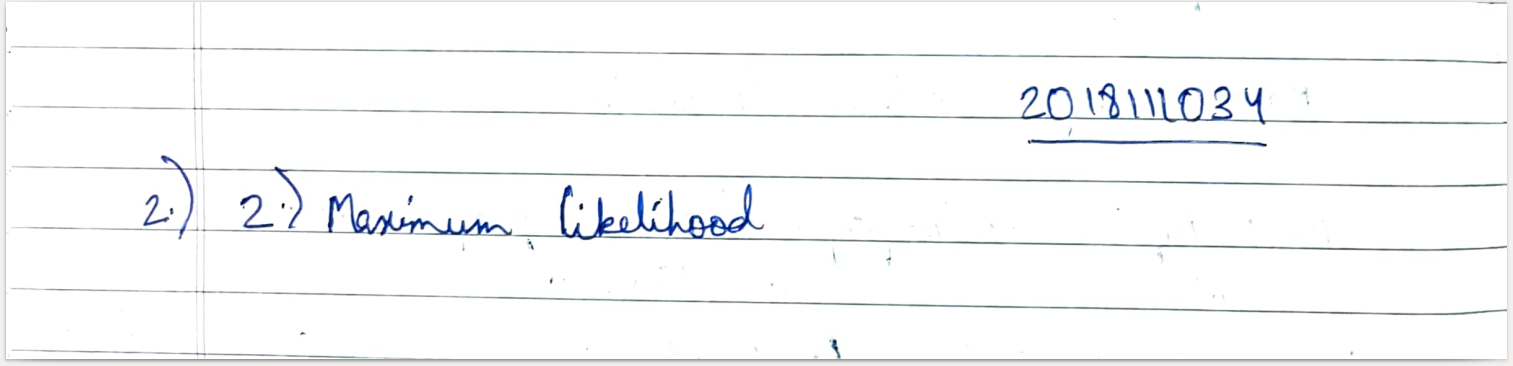 2018111034
2.) 2.) Maximum likelihood